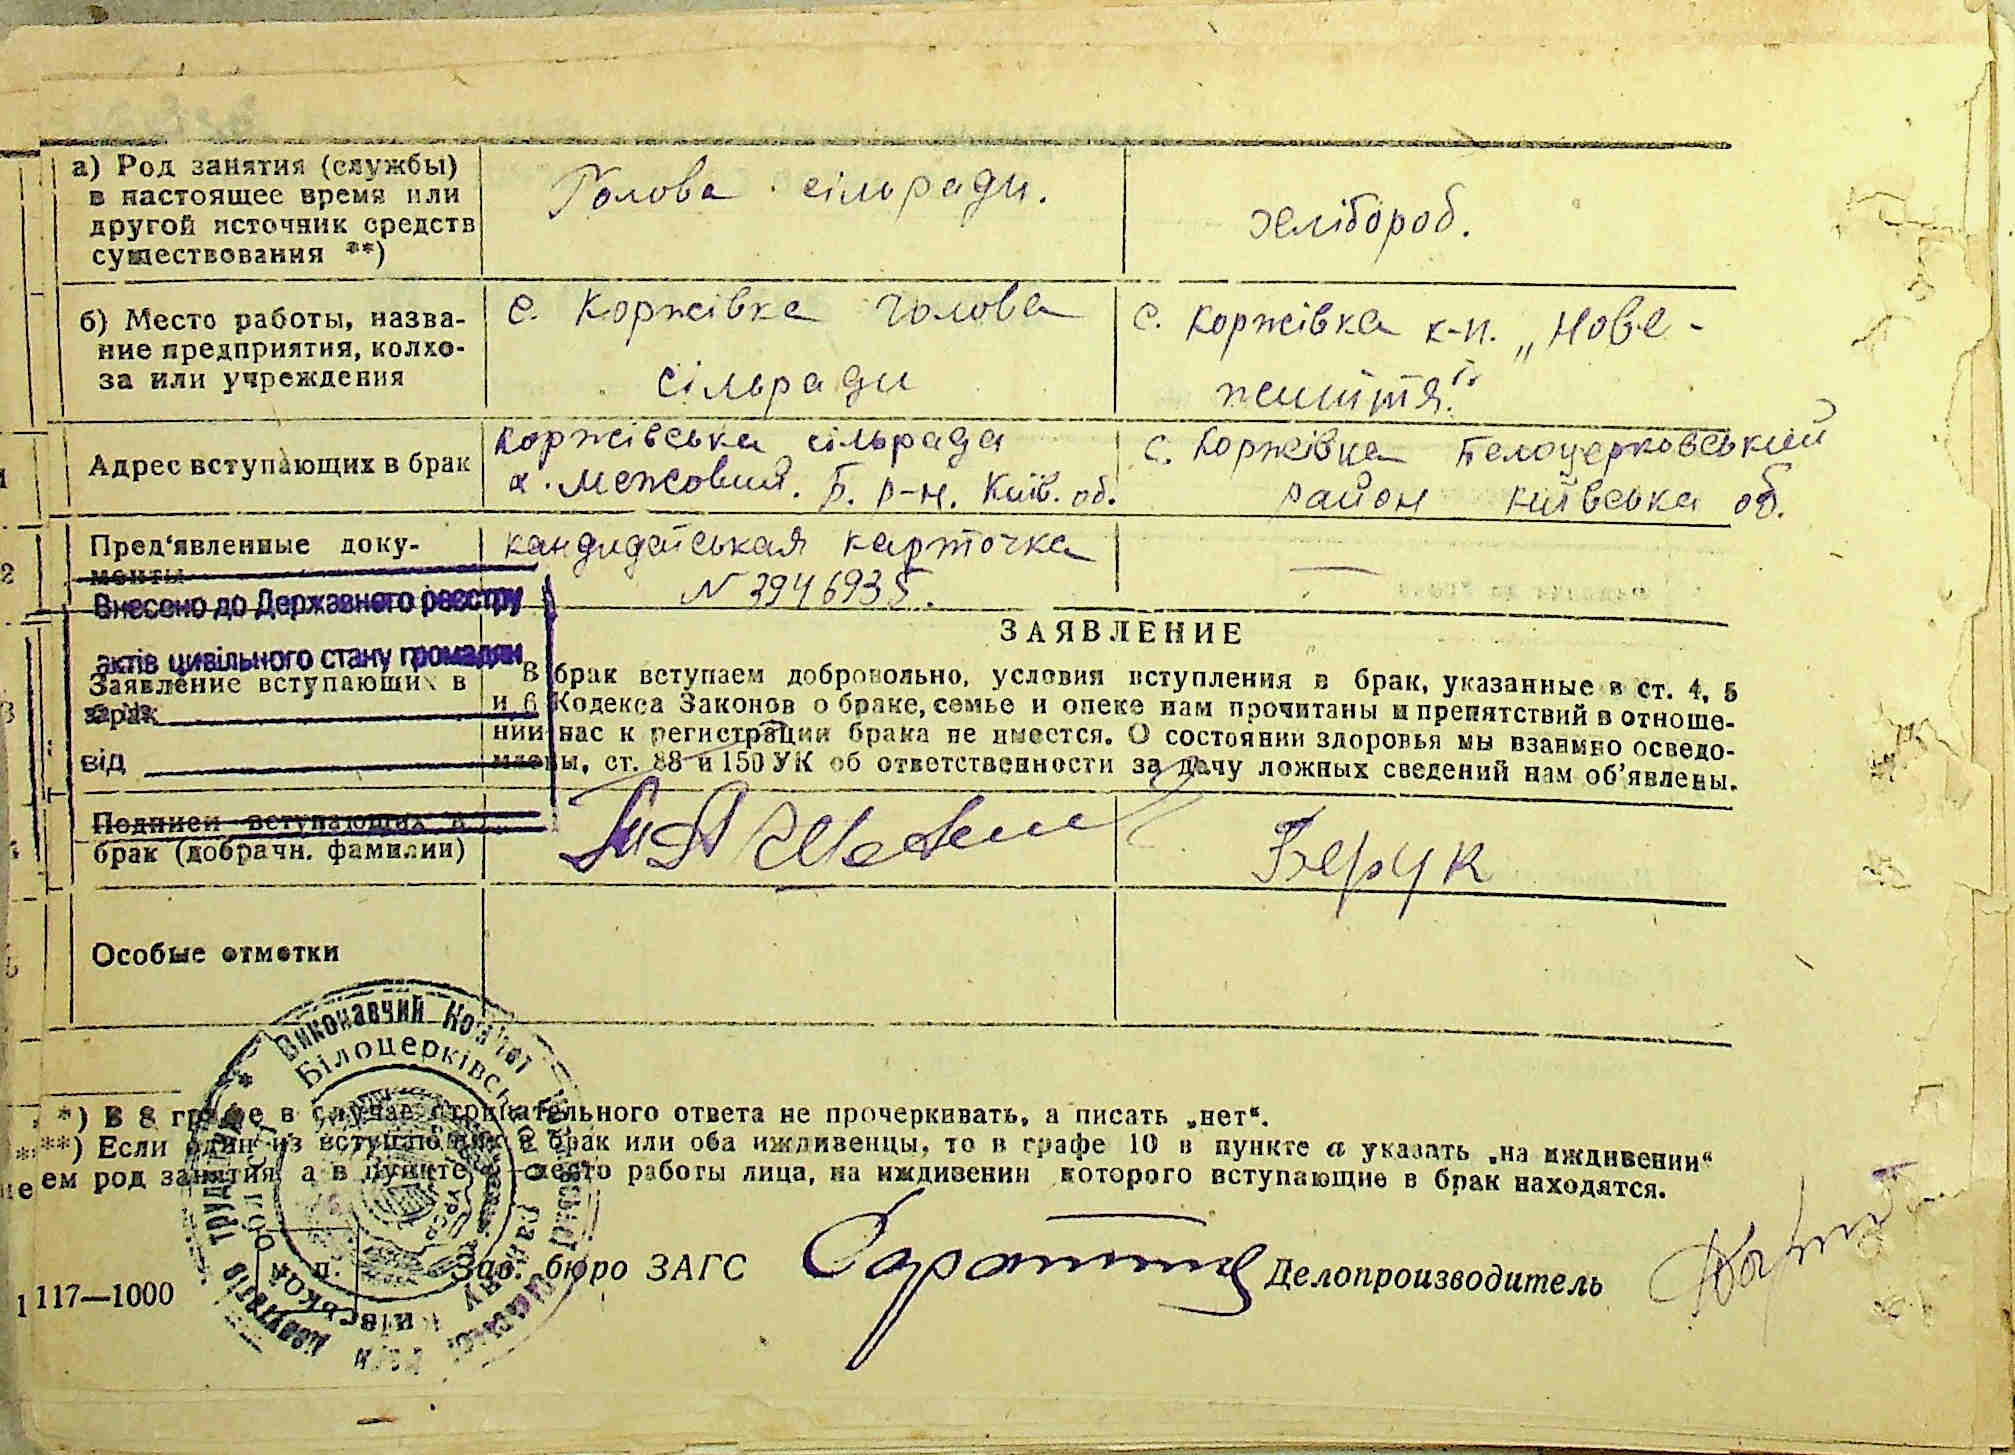 а) Род занятия (службы)
в настоящее время или
другой источник средств
существования **)
Голова сільради.
хлібороб.
б) Место работы, назва-
ние предприятия, колхо-
за или учреждения
с. Коржівка голова
сільради
с. Коржівка к-п. „Нове-
життя"
Адрес вступающих в брак
Коржівська сільрада
х. Межовий. Б. р-н. Київ. об.
с. Коржівка Белоцерковський
район Київська об.
Пред'явленные доку-
менты
кандидатськая карточка
N 3946935.
—
Внесено до Державного реєстру
актів цивільного стану громадян
за №
від
ЗАЯВЛЕНИЕ
Заявление вступающих в
брак
В брак вступаем добровольно, условия вступления в брак, указанные в ст. 4, 5
и 6 Кодекса Законов о браке, семье и опеке нам прочитаны и препятствий в отноше-
нии нас к регистрации брака не имеется. О состоянии здоровья мы взаимно осведо-
млены, ст. 88 и 150 УК об ответственности за дачу ложных сведений нам об'явлены.
Подписи вступающих в
брак (добрачн. фамилии)
Берук
Особые отметки
Виконавчий Комітет
Білоцерківського району Київської області
депутатів трудящих
*) В 8 графе в случае отрицательного ответа не прочеркивать, а писать „нет".
**) Если один из вступающих в брак или оба иждивенцы, то в графе 10 в пункте а указать „на иждивении"
ем род занятия, а в пункте б—место работы лица, на иждивении которого вступающие в брак находятся.
м. п.
Зав. бюро ЗАГС
Делопроизводитель
117—1000